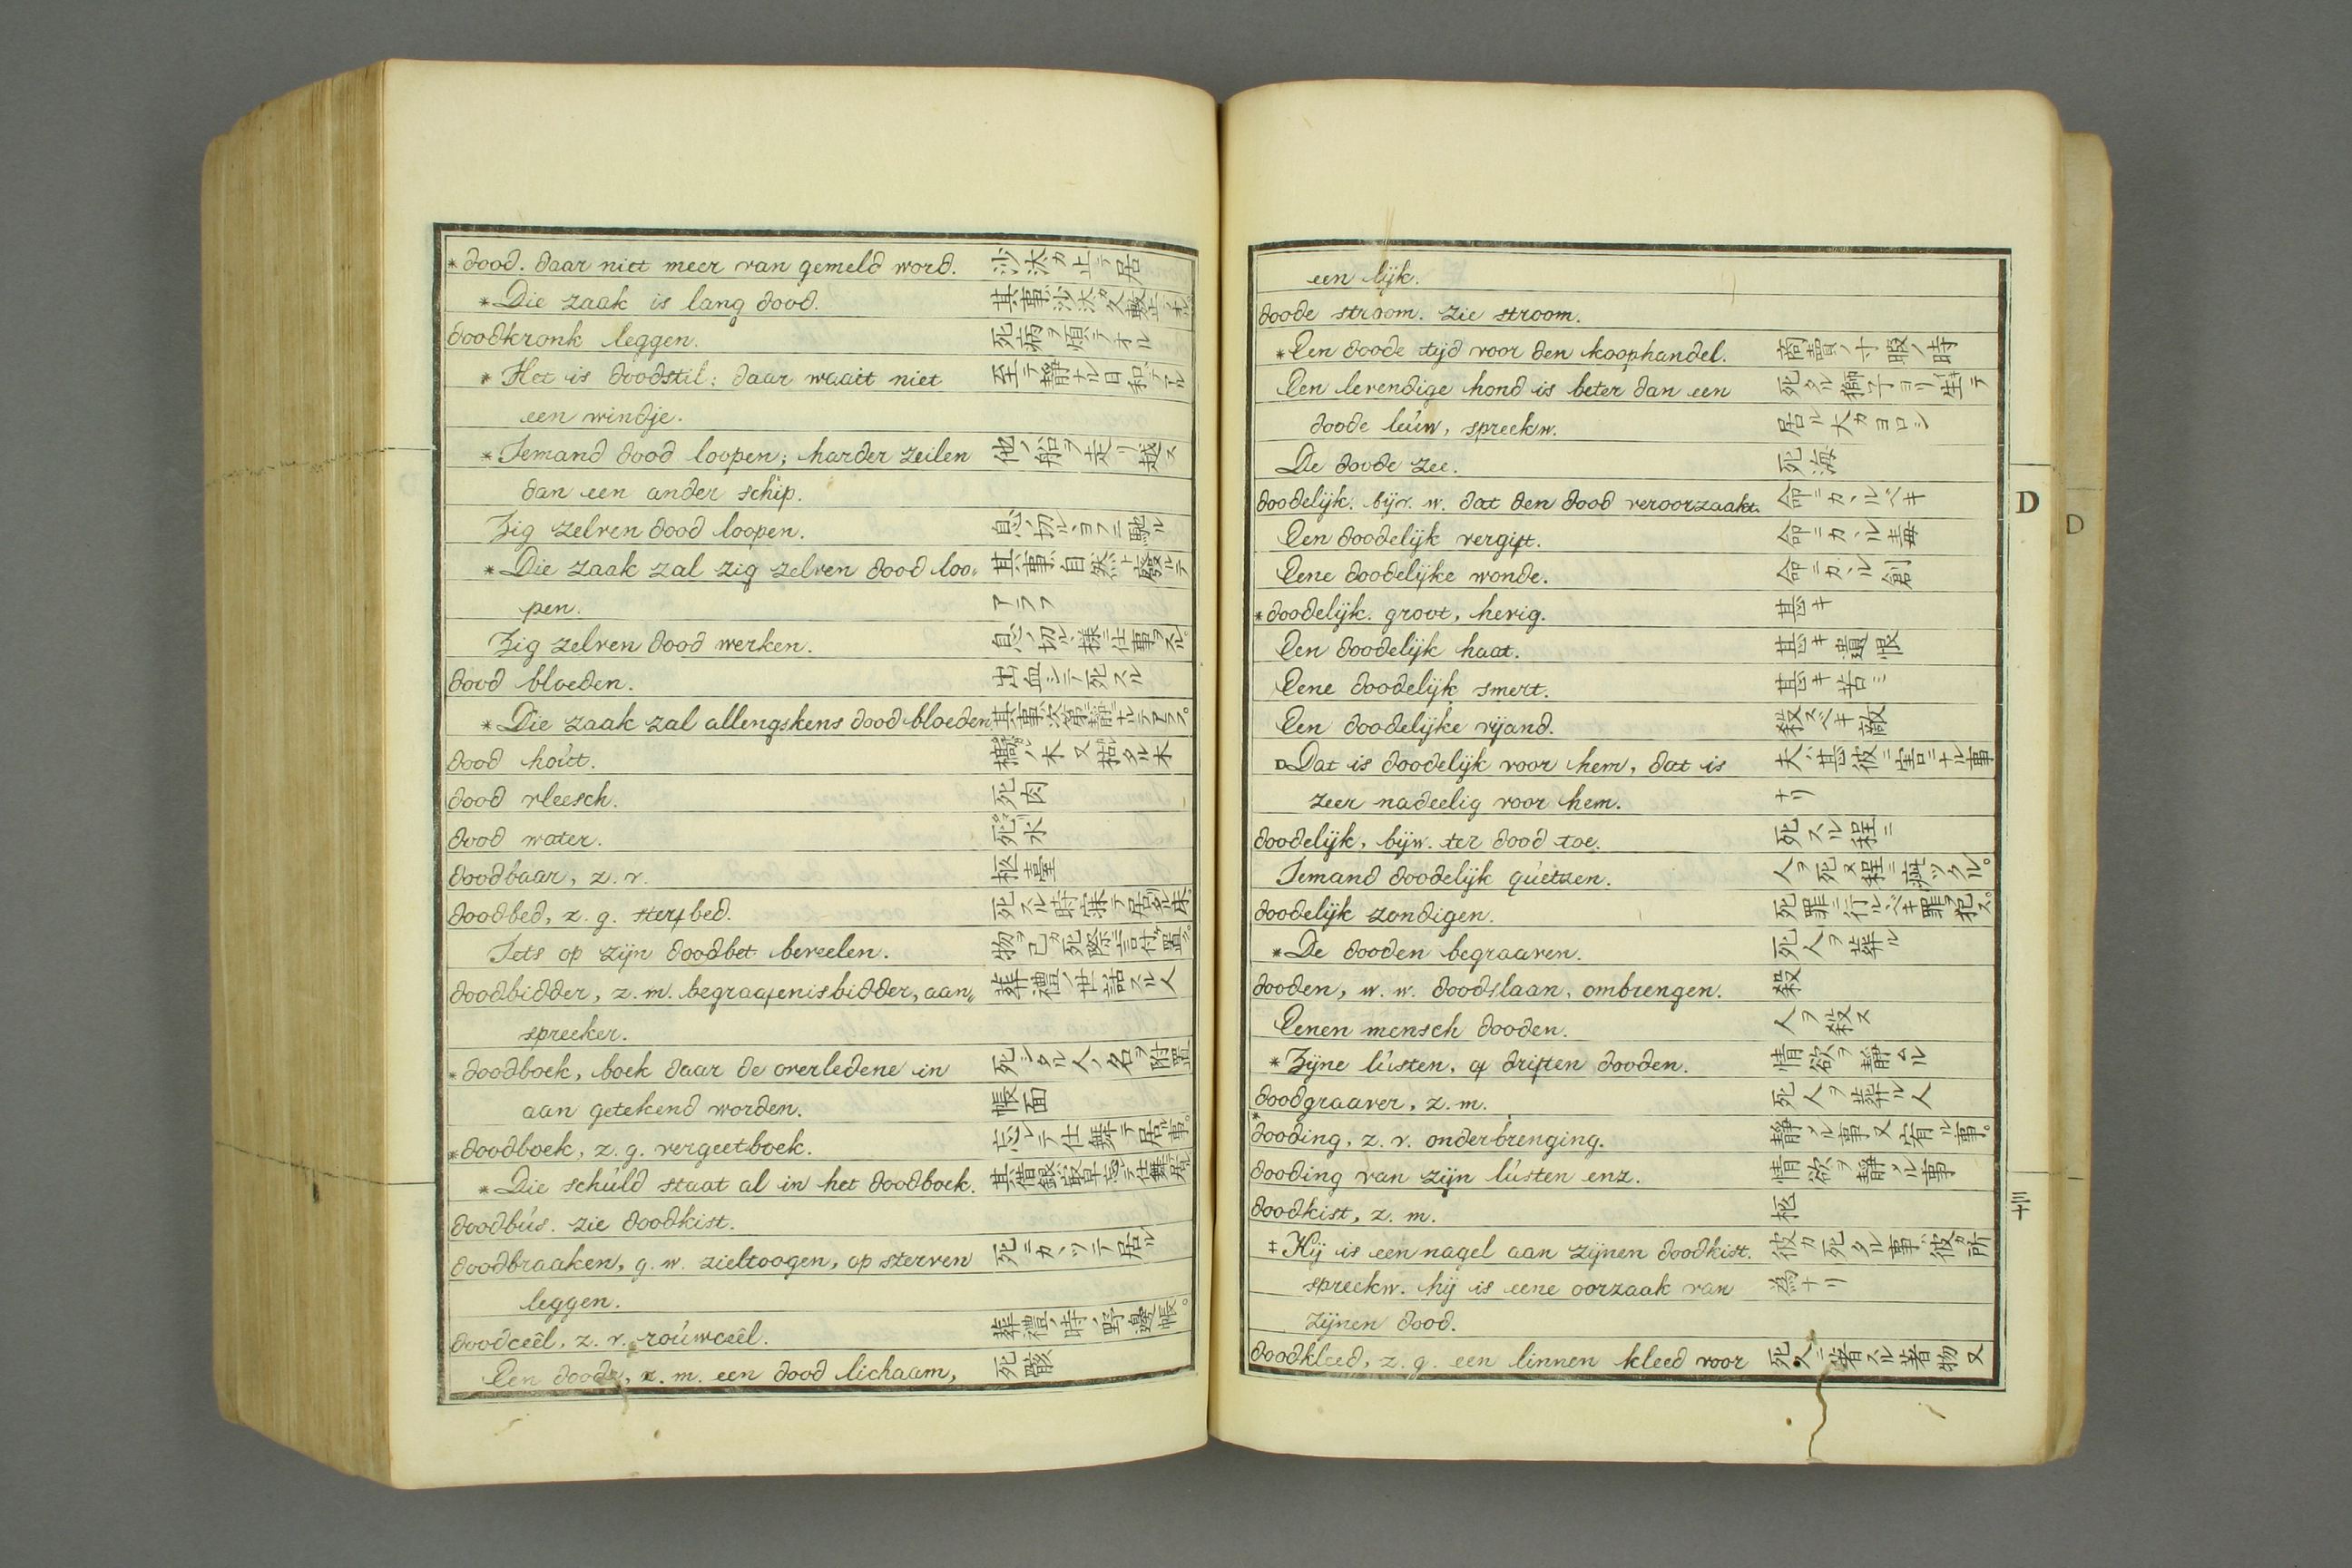 *dood. daar niet meer van gemeld word. 沙汰ガ止テ居
*Die zaak is lang dood. 其事ハ沙汰ガ久敷止ダ
doodkronk leggen. 死病ヲ煩テオル
*Het is doodstil: daar waait niet 至テ静ナル日和テアル
een windje.
*Iemand dood loopen; harder zeilen 他ノ船ヲ走リ越ス
dan een ander schip.
Zig zelven dood loopen. 息ノ切ルヨフニ馳ル
*Die zaak zal zig zelven dood loo„ 其事ハ自然ト廢ルテ
pen. アラフ
Zig zelven dood werken. 息ノ切ル様ニ仕事ヲスル。
dood bloeden. 出血シテ死スル
*Die zaak zal allengskens dood bloeden 其事次第ニ静ニナルテアラフ。
dood hoút. 木又枯タル木
dood vleesch. 死肉
dood water. 死水
doodbaar, z. v. 柩臺
doodbed, z. g. sterfbed. 死スル時寐テ居ル床
Iets op zijn doodbet beveelen. 物ヲ己ガ死際ニ言付置。
doodbidder, z. m. begraafenisbidder, aan„ 葬禮ノ世話スル人
spreeker.
*doodboek, boek daar de overledene in 死シタル人ノ名ヲ附置
aan getekend worden. 帳面
*doodboek, z. g. vergeetboek. 忘レテ仕舞テ居ル事。
*Die schúld staat al in het doodboek. 其借銀ハ最早忘テ仕舞
doodbús. zie doodkist.
doodbraaken, g. w. zieltoogen, op sterven 死ニカヽツテ居ル
leggen.
doodceêl, z. v. roúwceêl. 葬禮ノ時ノ野邊帳。
Een doode, z. m. een dood lichaam, 死骸
een lijk.
doode stroom. zie stroom.
*Een doode tijd voor den koophandel. 商賣ノ寸暇ノ時
Een levendige hond is beter dan een 死タル獅子ヨリ生テ
doode leúw, spreekw. 居ル犬ガヨロシ
De doode zee. 死海
doodelijk. bijv. w. dat den dood veroorzaakt. 命ニカヽルベキ
Een doodelijk vergift. 命ニカヽル毒
Eene doodelijke wonde. 命ニカヽル創
*doodelijk. groot, hevig. 甚キ
Een doodelijk haat. 甚キ遺恨
Eene doodelijk smert. 甚キ苦ミ
Een doodelijke vijand. 殺スベキ敵
Dat is doodelijk voor hem, dat is 夫ハ甚彼ニ害ニナル事
zeer nadeelig voor hem. ナリ
doodelijk, bijw. ter dood toe. 死スル程ニ
Iemand doodelijk qúetzen. 人ヲ死ヌ程ニ疵ツクル。
doodelijk zondigen. 死罪ニ行ルベキ罪ヲ犯ス。
*De dooden begraaven. 死人ヲ葬ル
dooden, w. w. doodslaan, ombrengen. 殺
Eenen mensch dooden. 人ヲ殺ス
*Zijne lústen, of driften dooden. 情欲ヲ静ムル
doodgraaver, z. m. 死人ヲ葬ル人
*dooding, z. v. onderbrenging. 静メル事又宥ル事。
dooding van zijn lústen enz. 情欲ヲ静メル事
doodkist, z. m. 柩
‡Hij is een nagel aan zijnen doodkist. 彼ガ死タル事ハ彼ガ所
spreekw. hij is eene oorzaak van 為ナリ
zijnen dood.
doodkleed, z. g. een linnen kleed voor 死人ニ著スル著物又
D
D